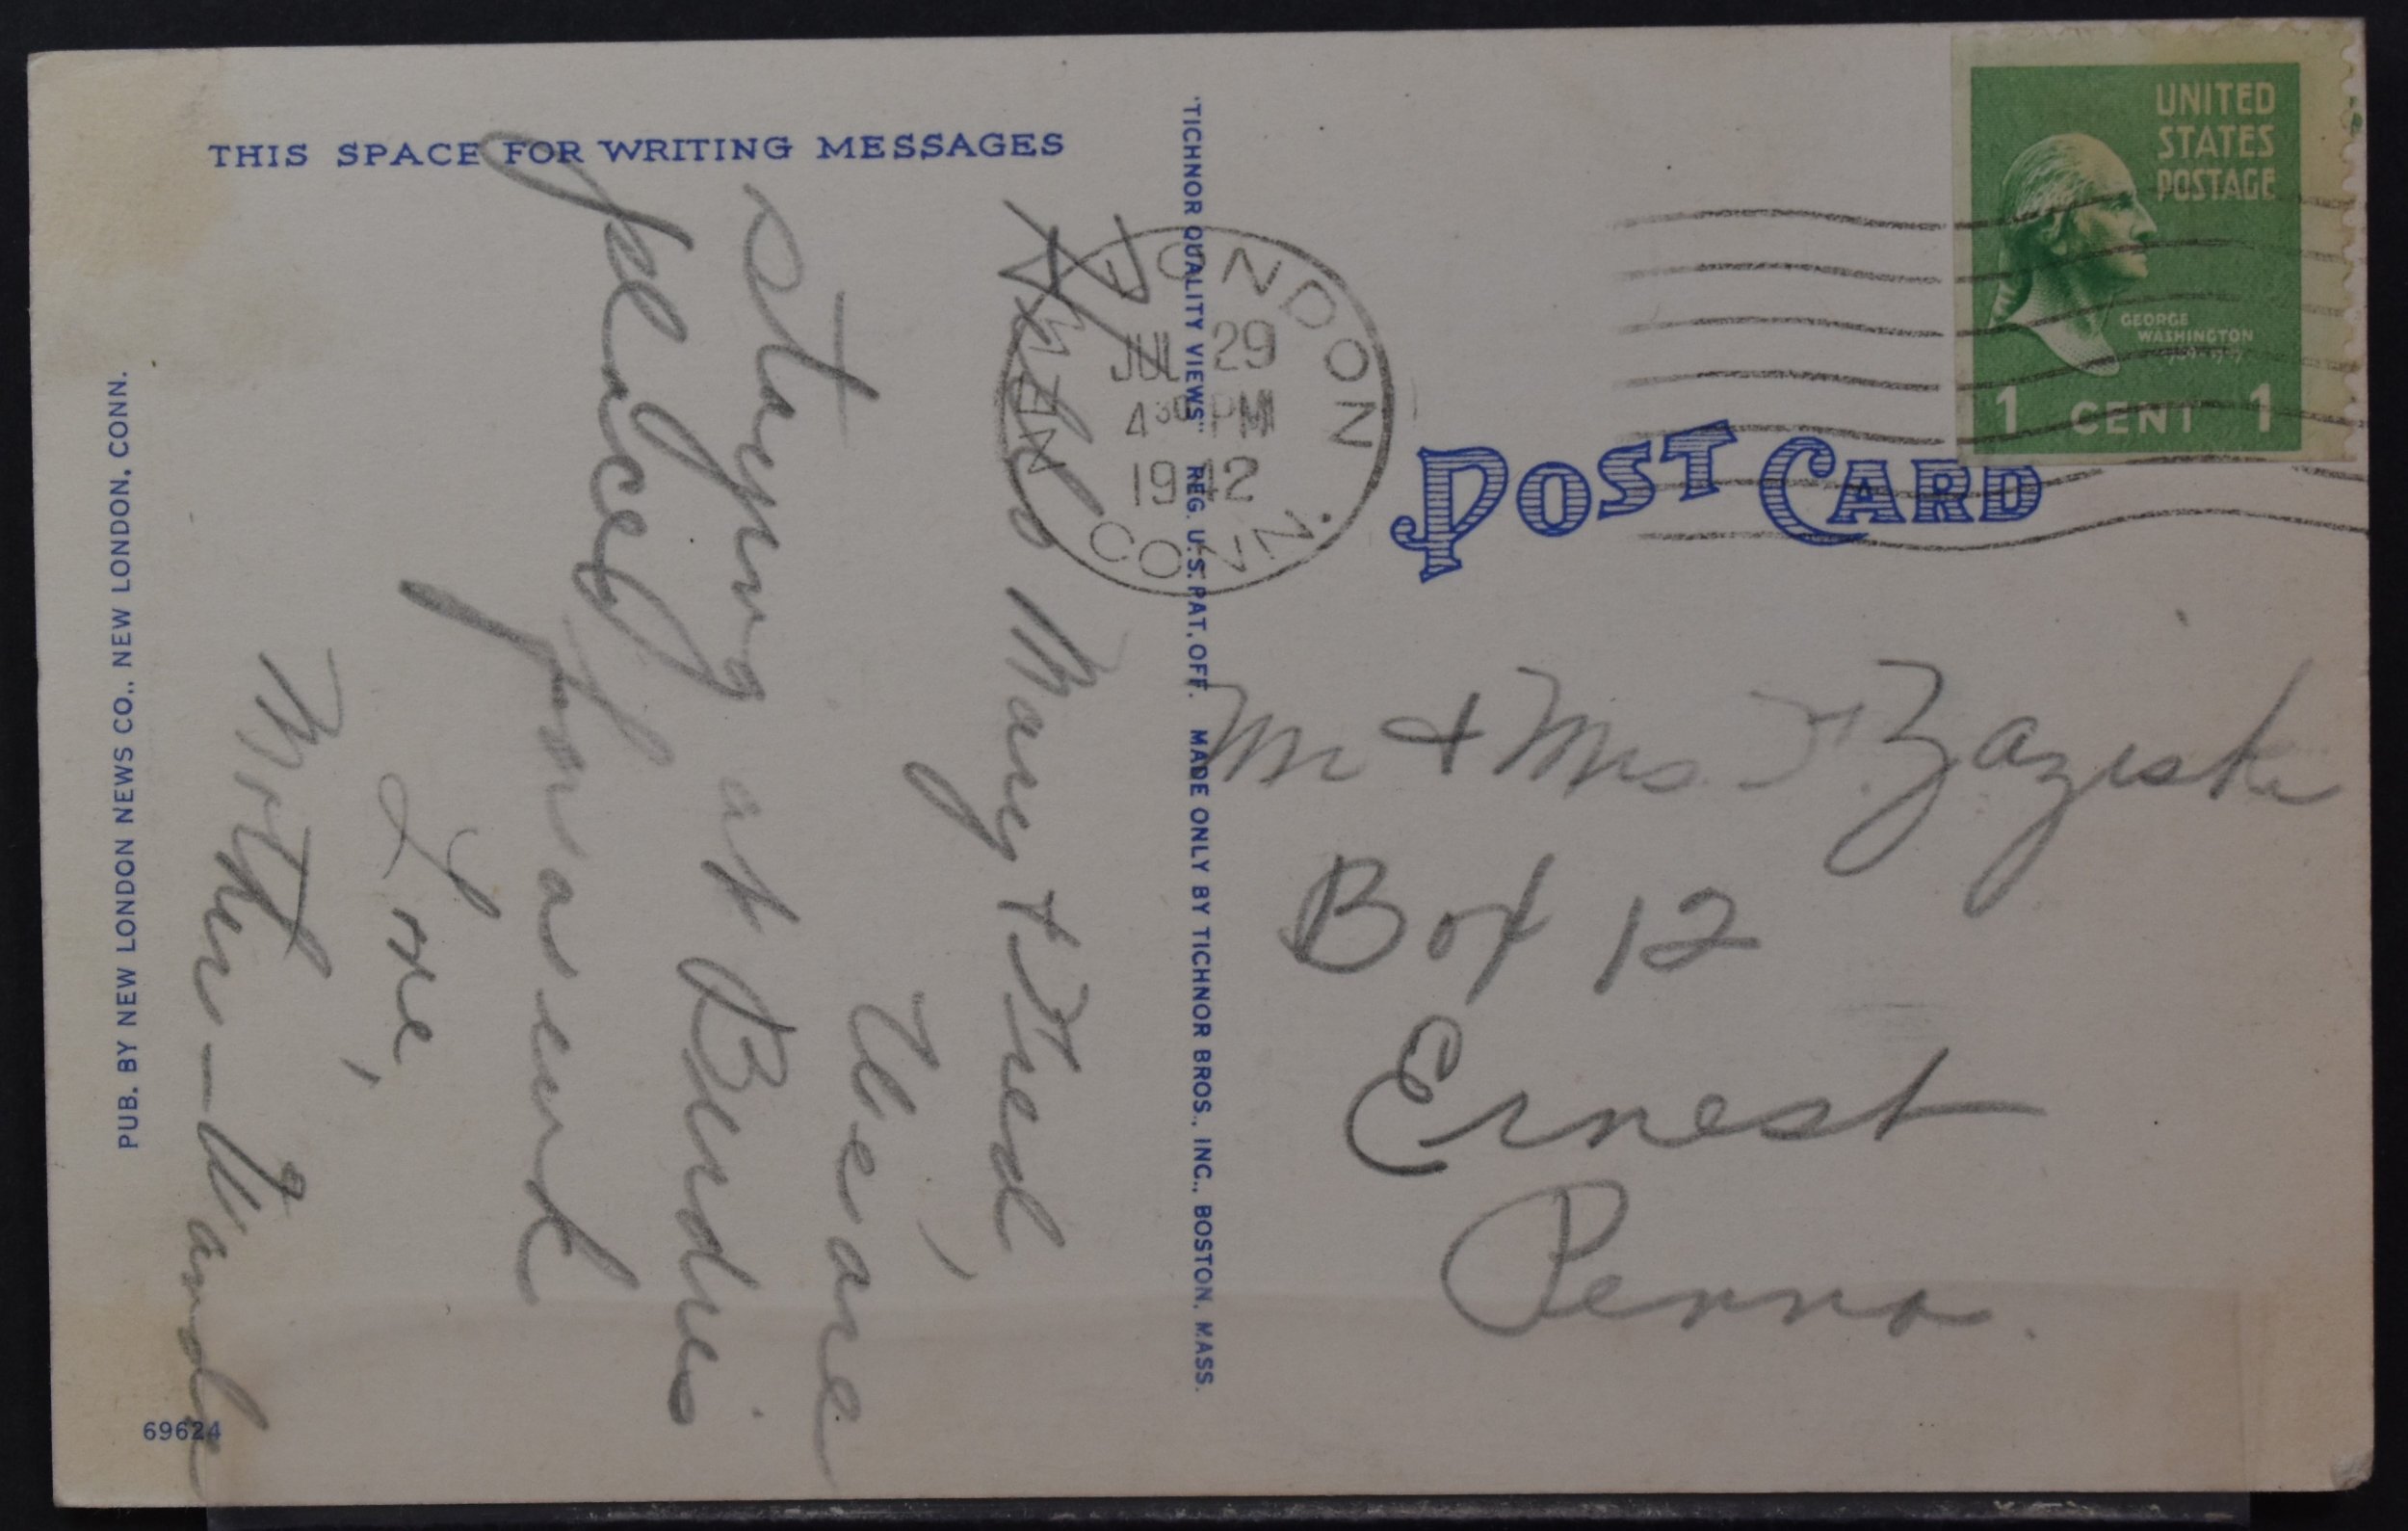 THIS SPACE FOR WRITING MESSAGES
Hello Mary + Fred,
We are
staying at Burdies
place for a
week
Love,
Mother - Wanda
PUB. BY NEW LONDON NEWS CO., NEW LONDON, CONN.
69624
"TICHNOR QUALITY VIEWS" REG. U.S. PAT. OFF. MADE ONLY BY TICHNOR BROS., INC., BOSTON, MASS.
NEW LONDON
JUL 29
4 30 PM
1942
CONN.
POST CARD
UNITED
STATES
POSTAGE
GEORGE
WASHINGTON
1 CENT 1
Mr + Mrs F. Zaziski
Box 12
Ernest
Penna.